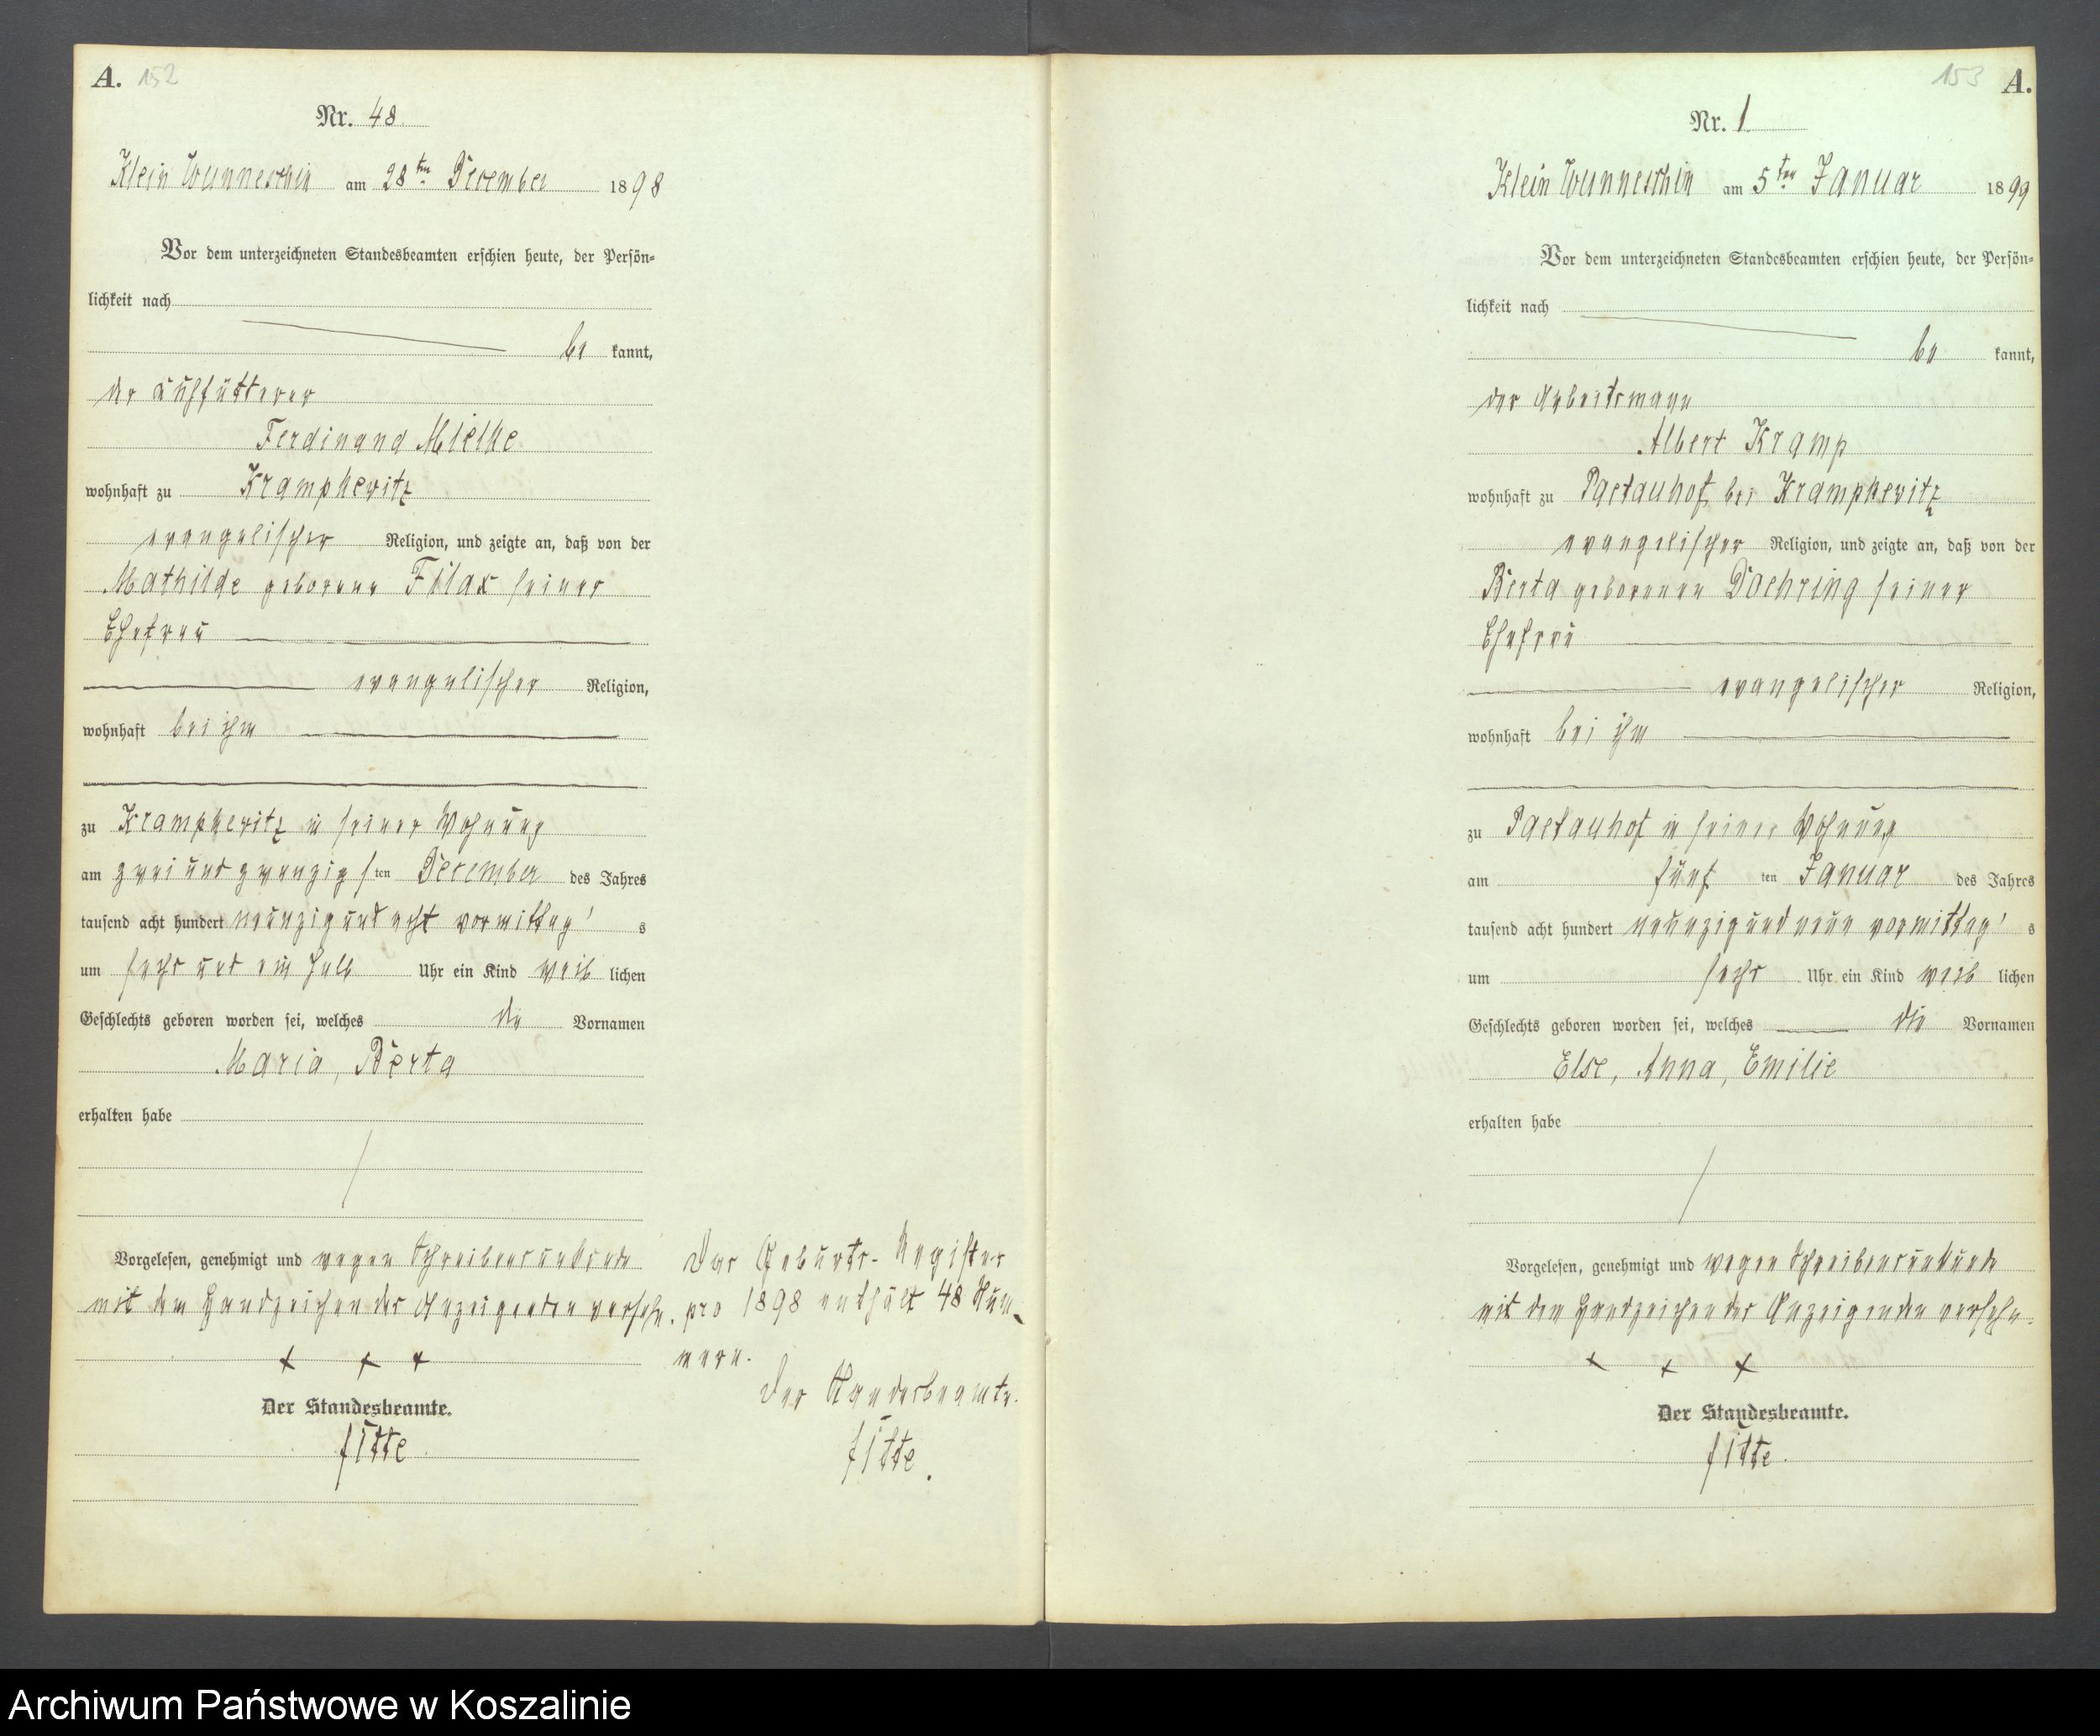 A. 152
Nr. 48
Klein Wunneschin am 28ten December 1898
Vor dem unterzeichneten Standesbeamten erschien heute, der Persön=
lichkeit nach
be kannt,
der Kuhfütterer
Ferdinand Mielke
wohnhaft zu Krampkewitz
evangelischer Religion, und zeigte an, daß von der
Mathilde geborene Filax seiner
Ehefrau
evangelischer Religion,
wohnhaft bei ihm
zu Krampkewitz in seiner Wohnung
am zwei und zwanzigsten December des Jahres
tausend acht hundert neunzig und acht vormittag's
um sechs und ein halb Uhr ein Kind weiblichen
Geschlechts geboren worden sei, welches die Vornamen
Maria, Berta
erhalten habe
Vorgelesen, genehmigt und wegen Schreibensunkunde
mit dem Handzeichen des Anzeigenden versehn.
+ + +
Der Standesbeamte.
Fitte
Das Geburts-Register
pro 1898 enthält 48 Num-
mern.
Der Standesbeamte.
Fitte.
153 A.
Nr. 1
Klein Wunneschin am 5ten Januar 1899
Vor dem unterzeichneten Standesbeamten erschien heute, der Persön=
lichkeit nach
be kannt,
der Arbeitsmann
Albert Kramp
wohnhaft zu bei Krampkewitz
evangelischer Religion, und zeigte an, daß von der
Berta geborenen Doehring seiner
Ehefrau
evangelischer Religion,
wohnhaft bei ihm
zu in seiner Wohnung
am fünf ten Januar des Jahres
tausend acht hundert neunzig und neun vormittag's
um sechs Uhr ein Kind weiblichen
Geschlechts geboren worden sei, welches die Vornamen
Else, Anna, Emilie
erhalten habe
Vorgelesen, genehmigt und wegen Schreibensunkunde
mit dem Handzeichen des Anzeigenden versehn.
+ + +
Der Standesbeamte.
Fitte.
Archiwum Państwowe w Koszalinie